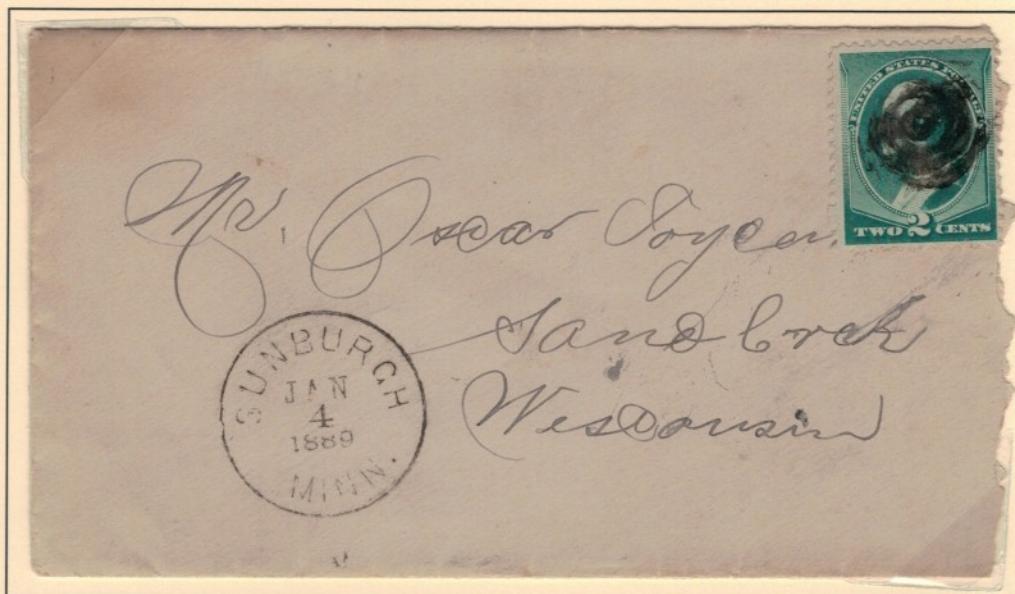 UNITED STATES POSTAGE
TWO 2 CENTS
Mr. Oscar
Sand Crek
Wesconsin
SUNBURGH
JAN
4
1889
MINN.